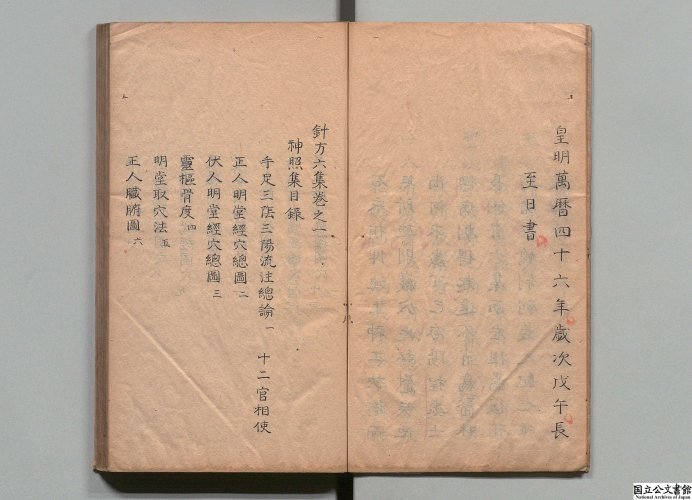 皇明萬曆四十六年歲次戊午長
至日書
針方六集卷之一
神照集目錄
手足三陰三陽流注總論 一 十二官相使
正人明堂經穴總圖 二
伏人明堂經穴總圖 三
靈樞骨度 四
明堂取穴法 五
正人臟腑圖 六
国立公文書館
National Archives of Japan